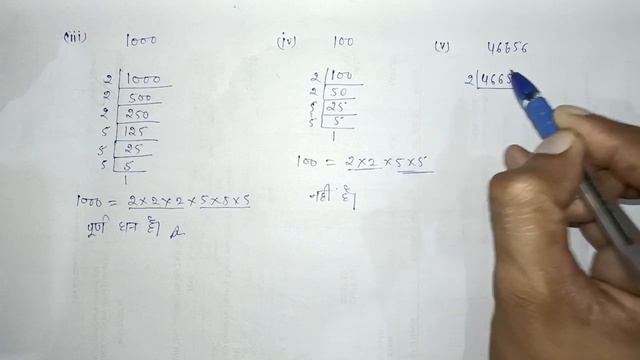 (iii) 1000
2 | 1000
2 | 500
2 | 250
5 | 125
5 | 25
5 | 5
1
1000 = 2×2×2×5×5×5
पूर्ण घन है।
(iv) 100
2 | 100
2 | 50
5 | 25
5 | 5
1
100 = 2×2×5×5
नहीं है।
(v) 46656
2 | 4665